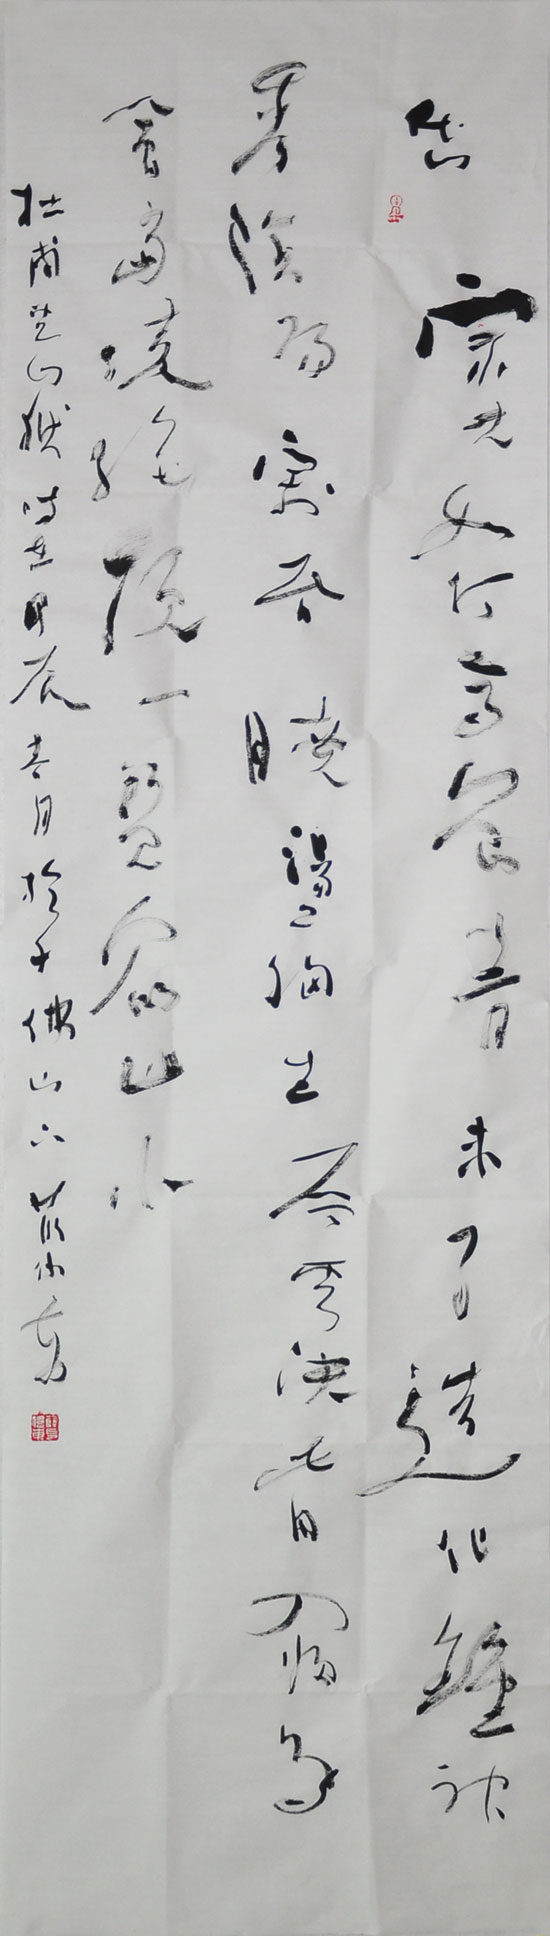 岱宗夫如何齊魯青未了造化鍾神
秀陰陽割昏曉盪胸生層雲決眥入歸鳥
會當凌絕頂一覽眾山小
杜甫望岳詩甲辰春月於千佛山下